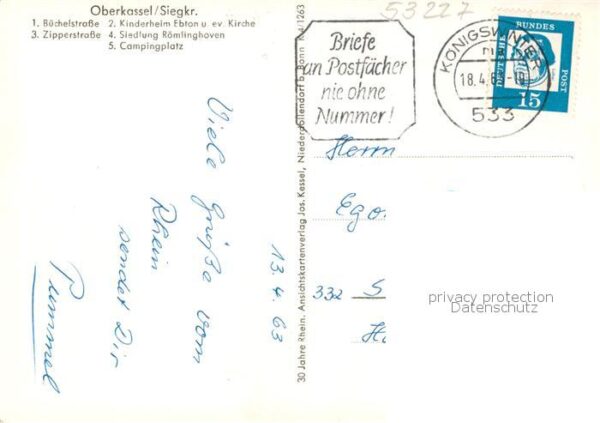 Oberkassel/Siegkr.
1. Büchelstraße 2. Kinderheim Ebton u. ev. Kirche
3. Zipperstraße 4. Siedlung Römlinghoven
5. Campingplatz
53227
Briefe
an Postfächer
nie ohne
Nummer!
KÖNIGSWINTER
18.4.6
533
DEUTSCHE BUNDES POST
15
30 Jahre Rhein. Ansichtskartenverlag Jos. Kessel, Niederdollendorf b. Bonn
4/1263
Viele Grüße vom
Rhein
sendet Dir
Pummel
13.4.63
Herrn
Ego.
332 S
H.
privacy protection
Datenschutz